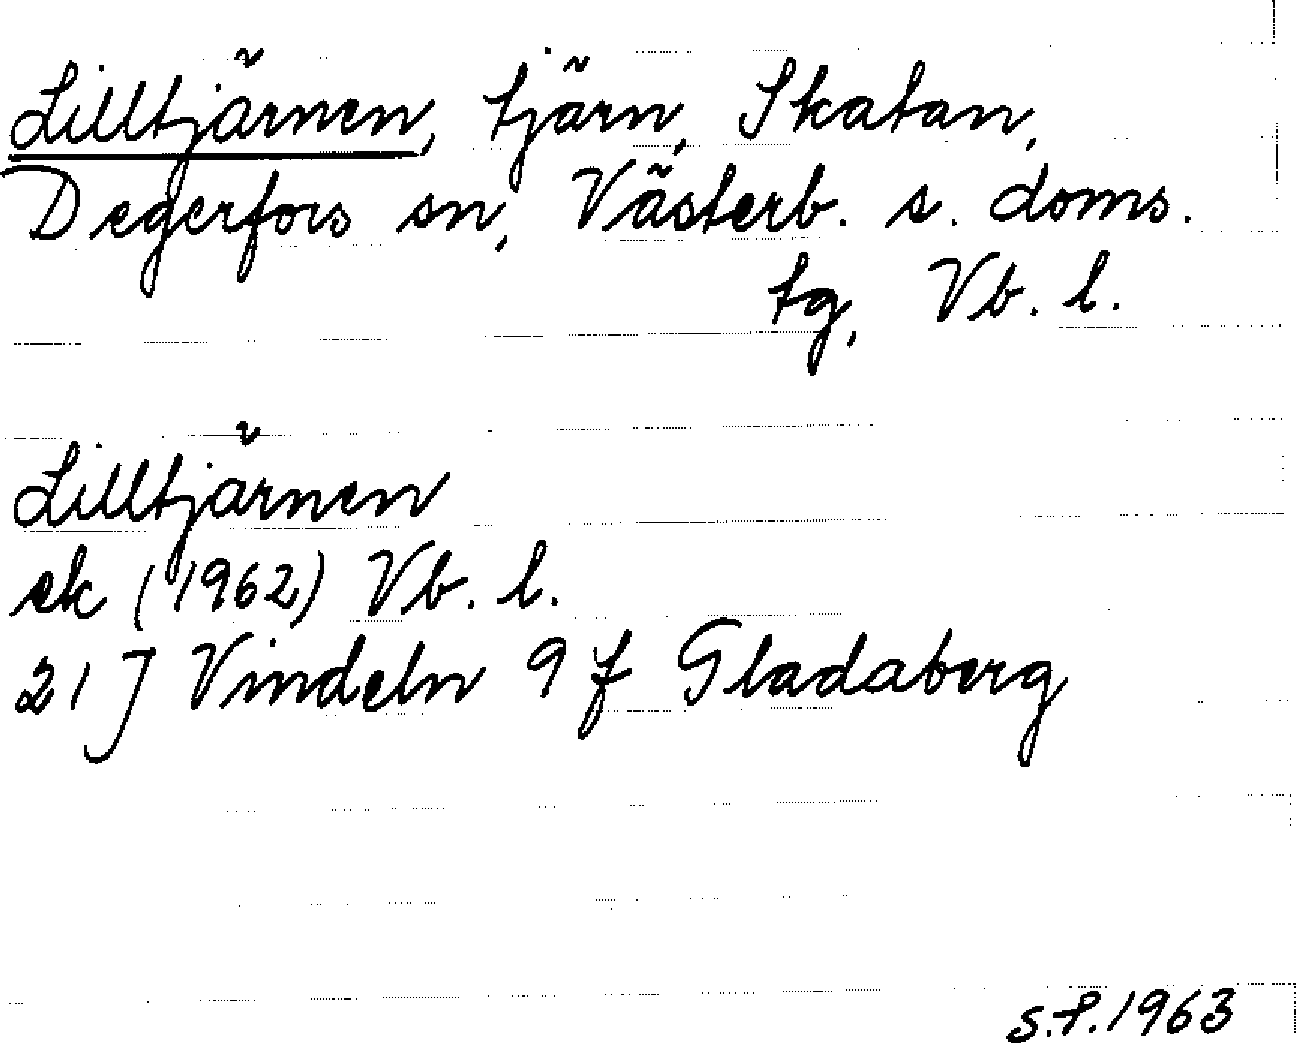 Lilltjärnen, tjärn, Skatan,
Degerfors sn, Västerb. s. doms.
tg, Vb. l.
Lilltjärnen
ek (1962) Vb. l.
21 J Vindeln 9 f Gladaberg
S.F. 1963